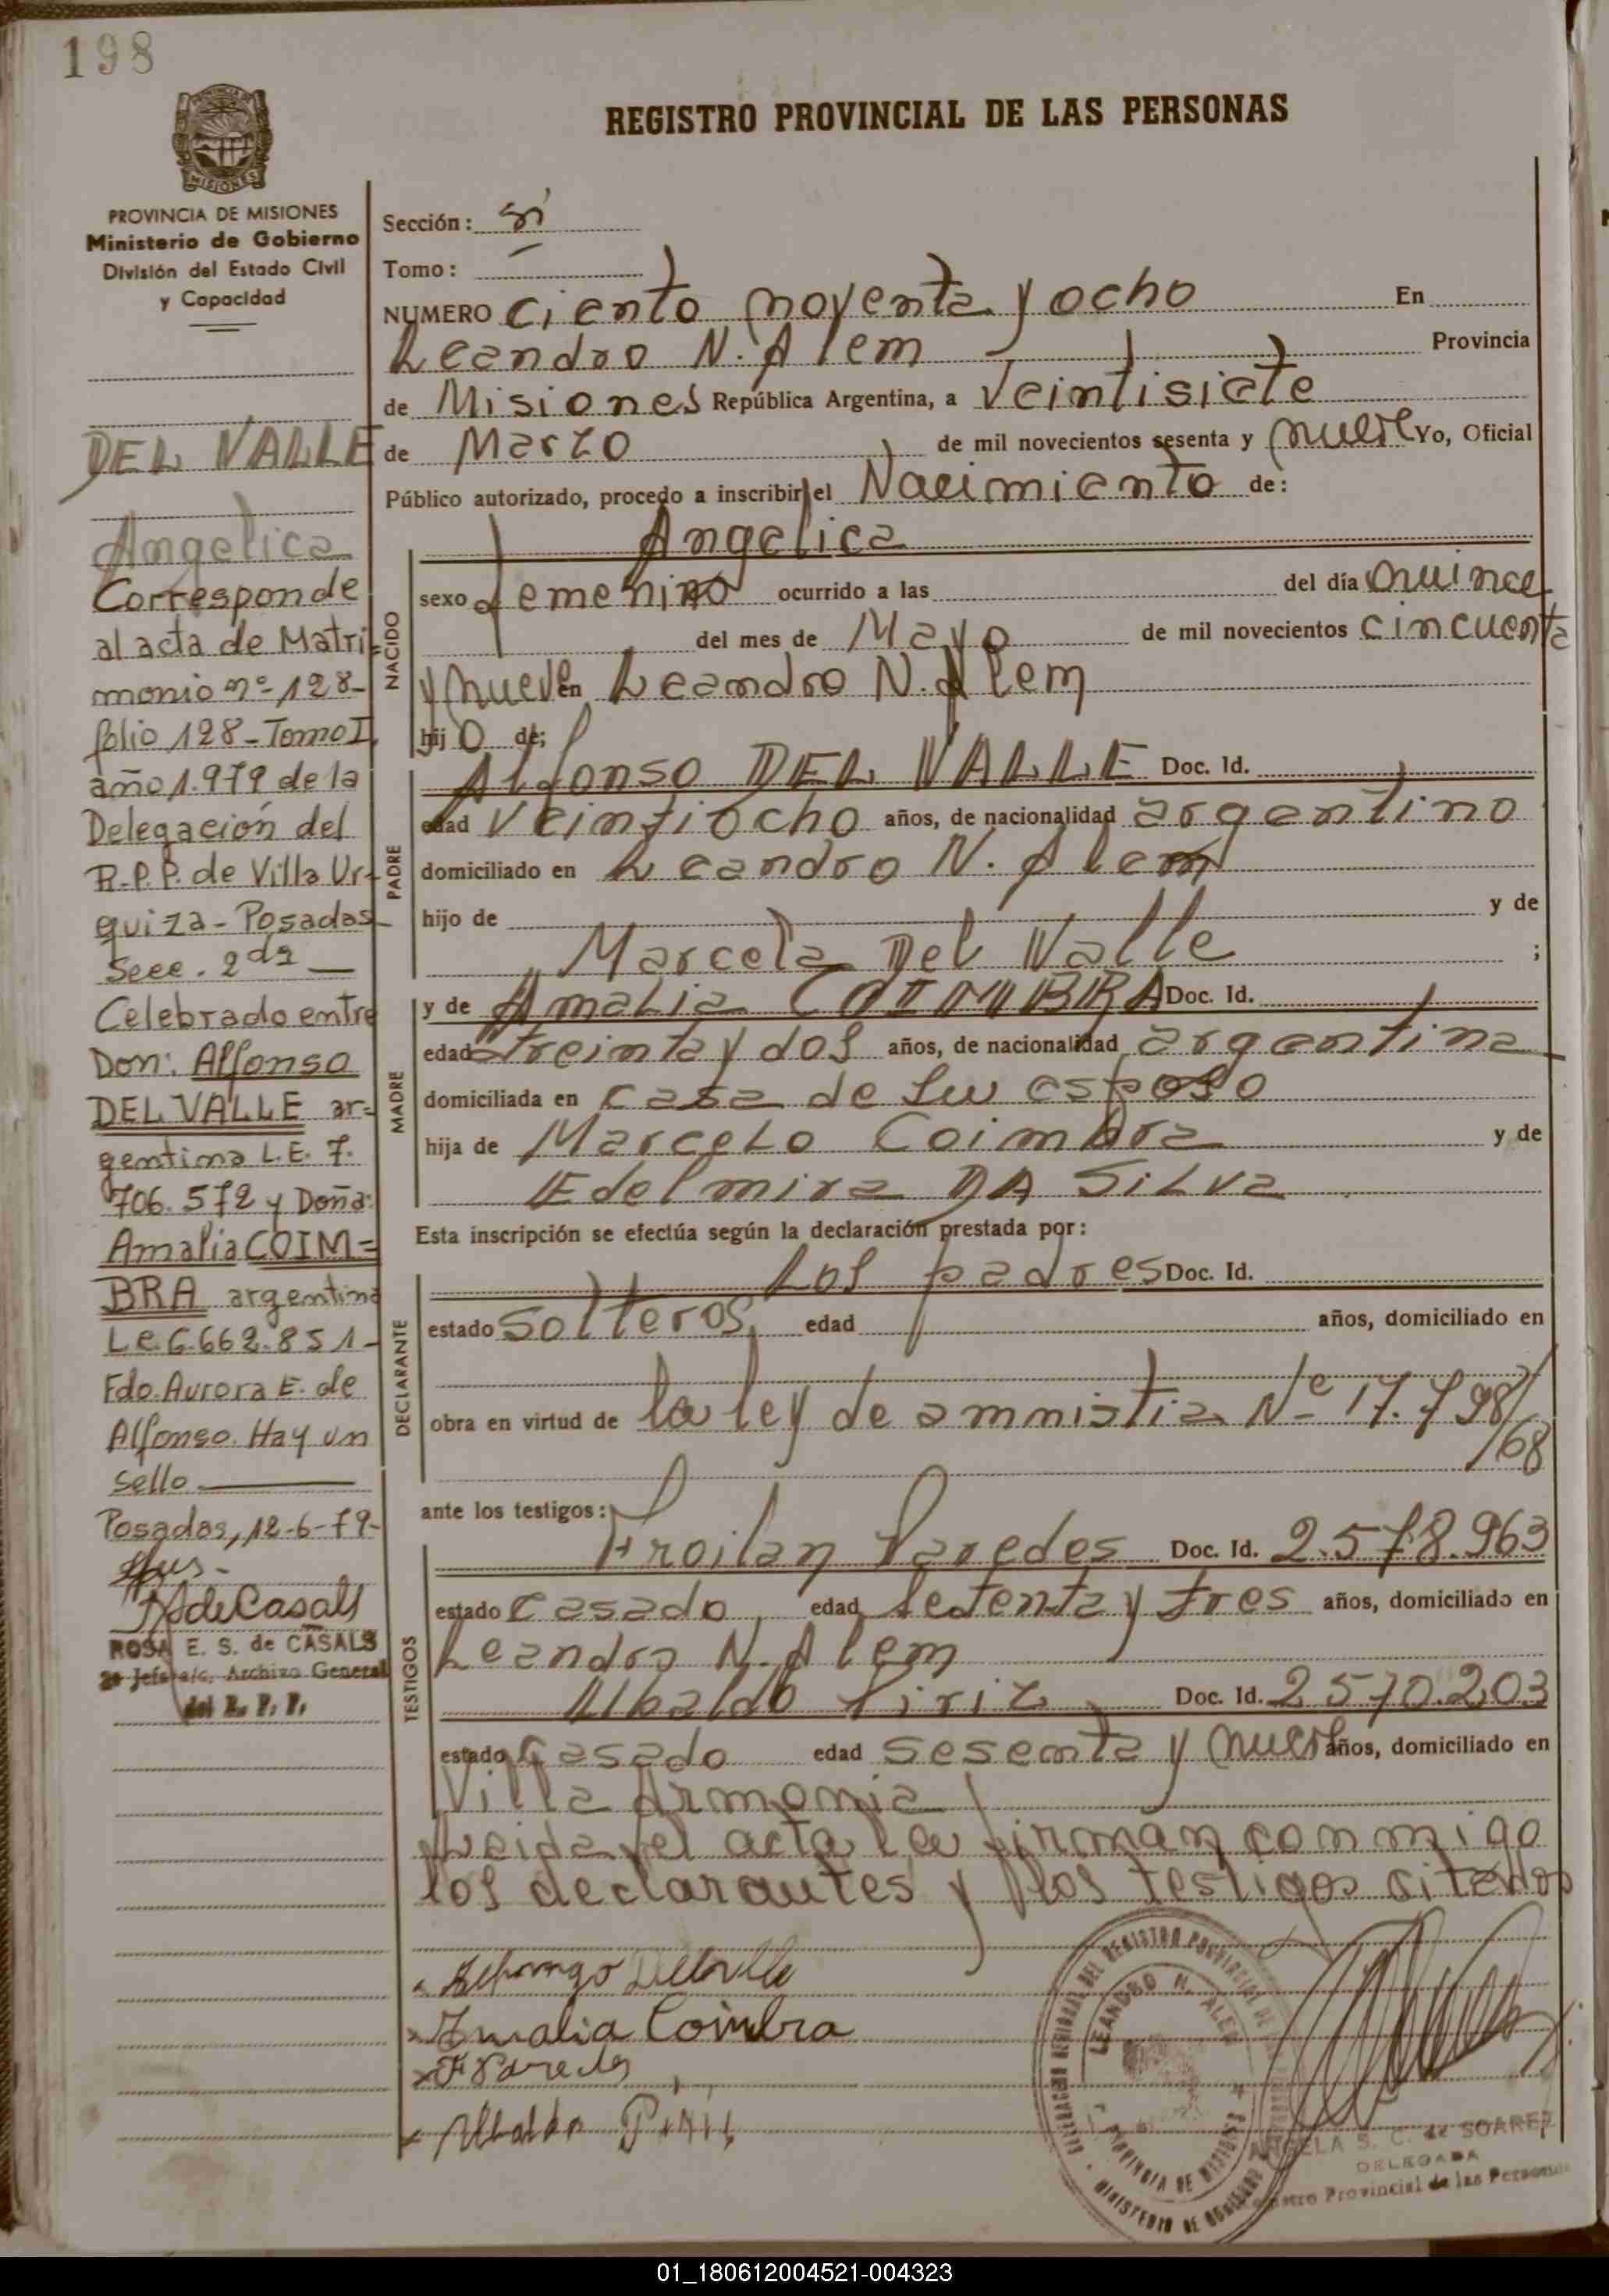 198
REGISTRO PROVINCIAL DE LAS PERSONAS
MISIONES
PROVINCIA DE MISIONES
Ministerio de Gobierno
División del Estado Civil
y Capacidad
DEL VALLE
Angelica
Corresponde
al acta de Matri
monio nº 128-
folio 128-Tomo I,
año 1.979 de la
Delegación del
R.P.P. de Villa Ur-
quiza-Posadas-
Secc. 2da
Celebrado entre
Don: Alfonso
DEL VALLE ar=
gentino L.E. 7.
706.572 y Doña:
Amalia COIM=
BRA argentina
L.C. 6.662.851-
Fdo. Aurora E. de
Alfonso. Hay un
sello
Posadas, 12-6-79-
ROSA E. S. de CASALS
2º Jefe a/c. Archivo General
del R. P. P.
Sección:
Tomo: -
NUMERO Ciento noventa y ocho En
Leandro N. Alem Provincia
de Misiones República Argentina, a Veintisiete
de Marzo de mil novecientos sesenta y nueve Yo, Oficial
Público autorizado, procedo a inscribir el Nacimiento de:
Angelica
NACIDO
sexo femenino ocurrido a las del día quince
del mes de Mayo de mil novecientos cincuenta
y nueve en Leandro N. Alem
hij O de;
PADRE
Alfonso DEL VALLE Doc. Id.
edad Veintiocho años, de nacionalidad argentino
domiciliado en Leandro N. Alem
hijo de y de
Marcela Del Valle ;
MADRE
y de Amalia COIMBRA Doc. Id.
edad treinta y dos años, de nacionalidad argentina
domiciliada en casa de su esposo
hija de Marcelo Coimbra y de
Edelmira DA SILVA
Esta inscripción se efectúa según la declaración prestada por:
DECLARANTE
Los padres Doc. Id.
estado solteros, edad años, domiciliado en
obra en virtud de la ley de amnistia Nº 17.798/
/68
ante los testigos:
TESTIGOS
Froilan Paredes Doc. Id. 2.578.963
estado casado, edad setenta y tres años, domiciliado en
Leandro N. Alem
Ubaldo Piriz Doc. Id. 2.570.203
estado casado edad sesenta y nueve años, domiciliado en
Villa Armonia
Leida el acta la firman conmigo
los declarantes y los testigos citados
Amalia Coimbra
F Paredes
Ubaldo Piriz
LEANDRO N. ALEM
PROVINCIA DE MISIONES
ANGELA S. C. de SOAREZ
DELEGADA
Registro Provincial de las Personas
01_180612004521-004323